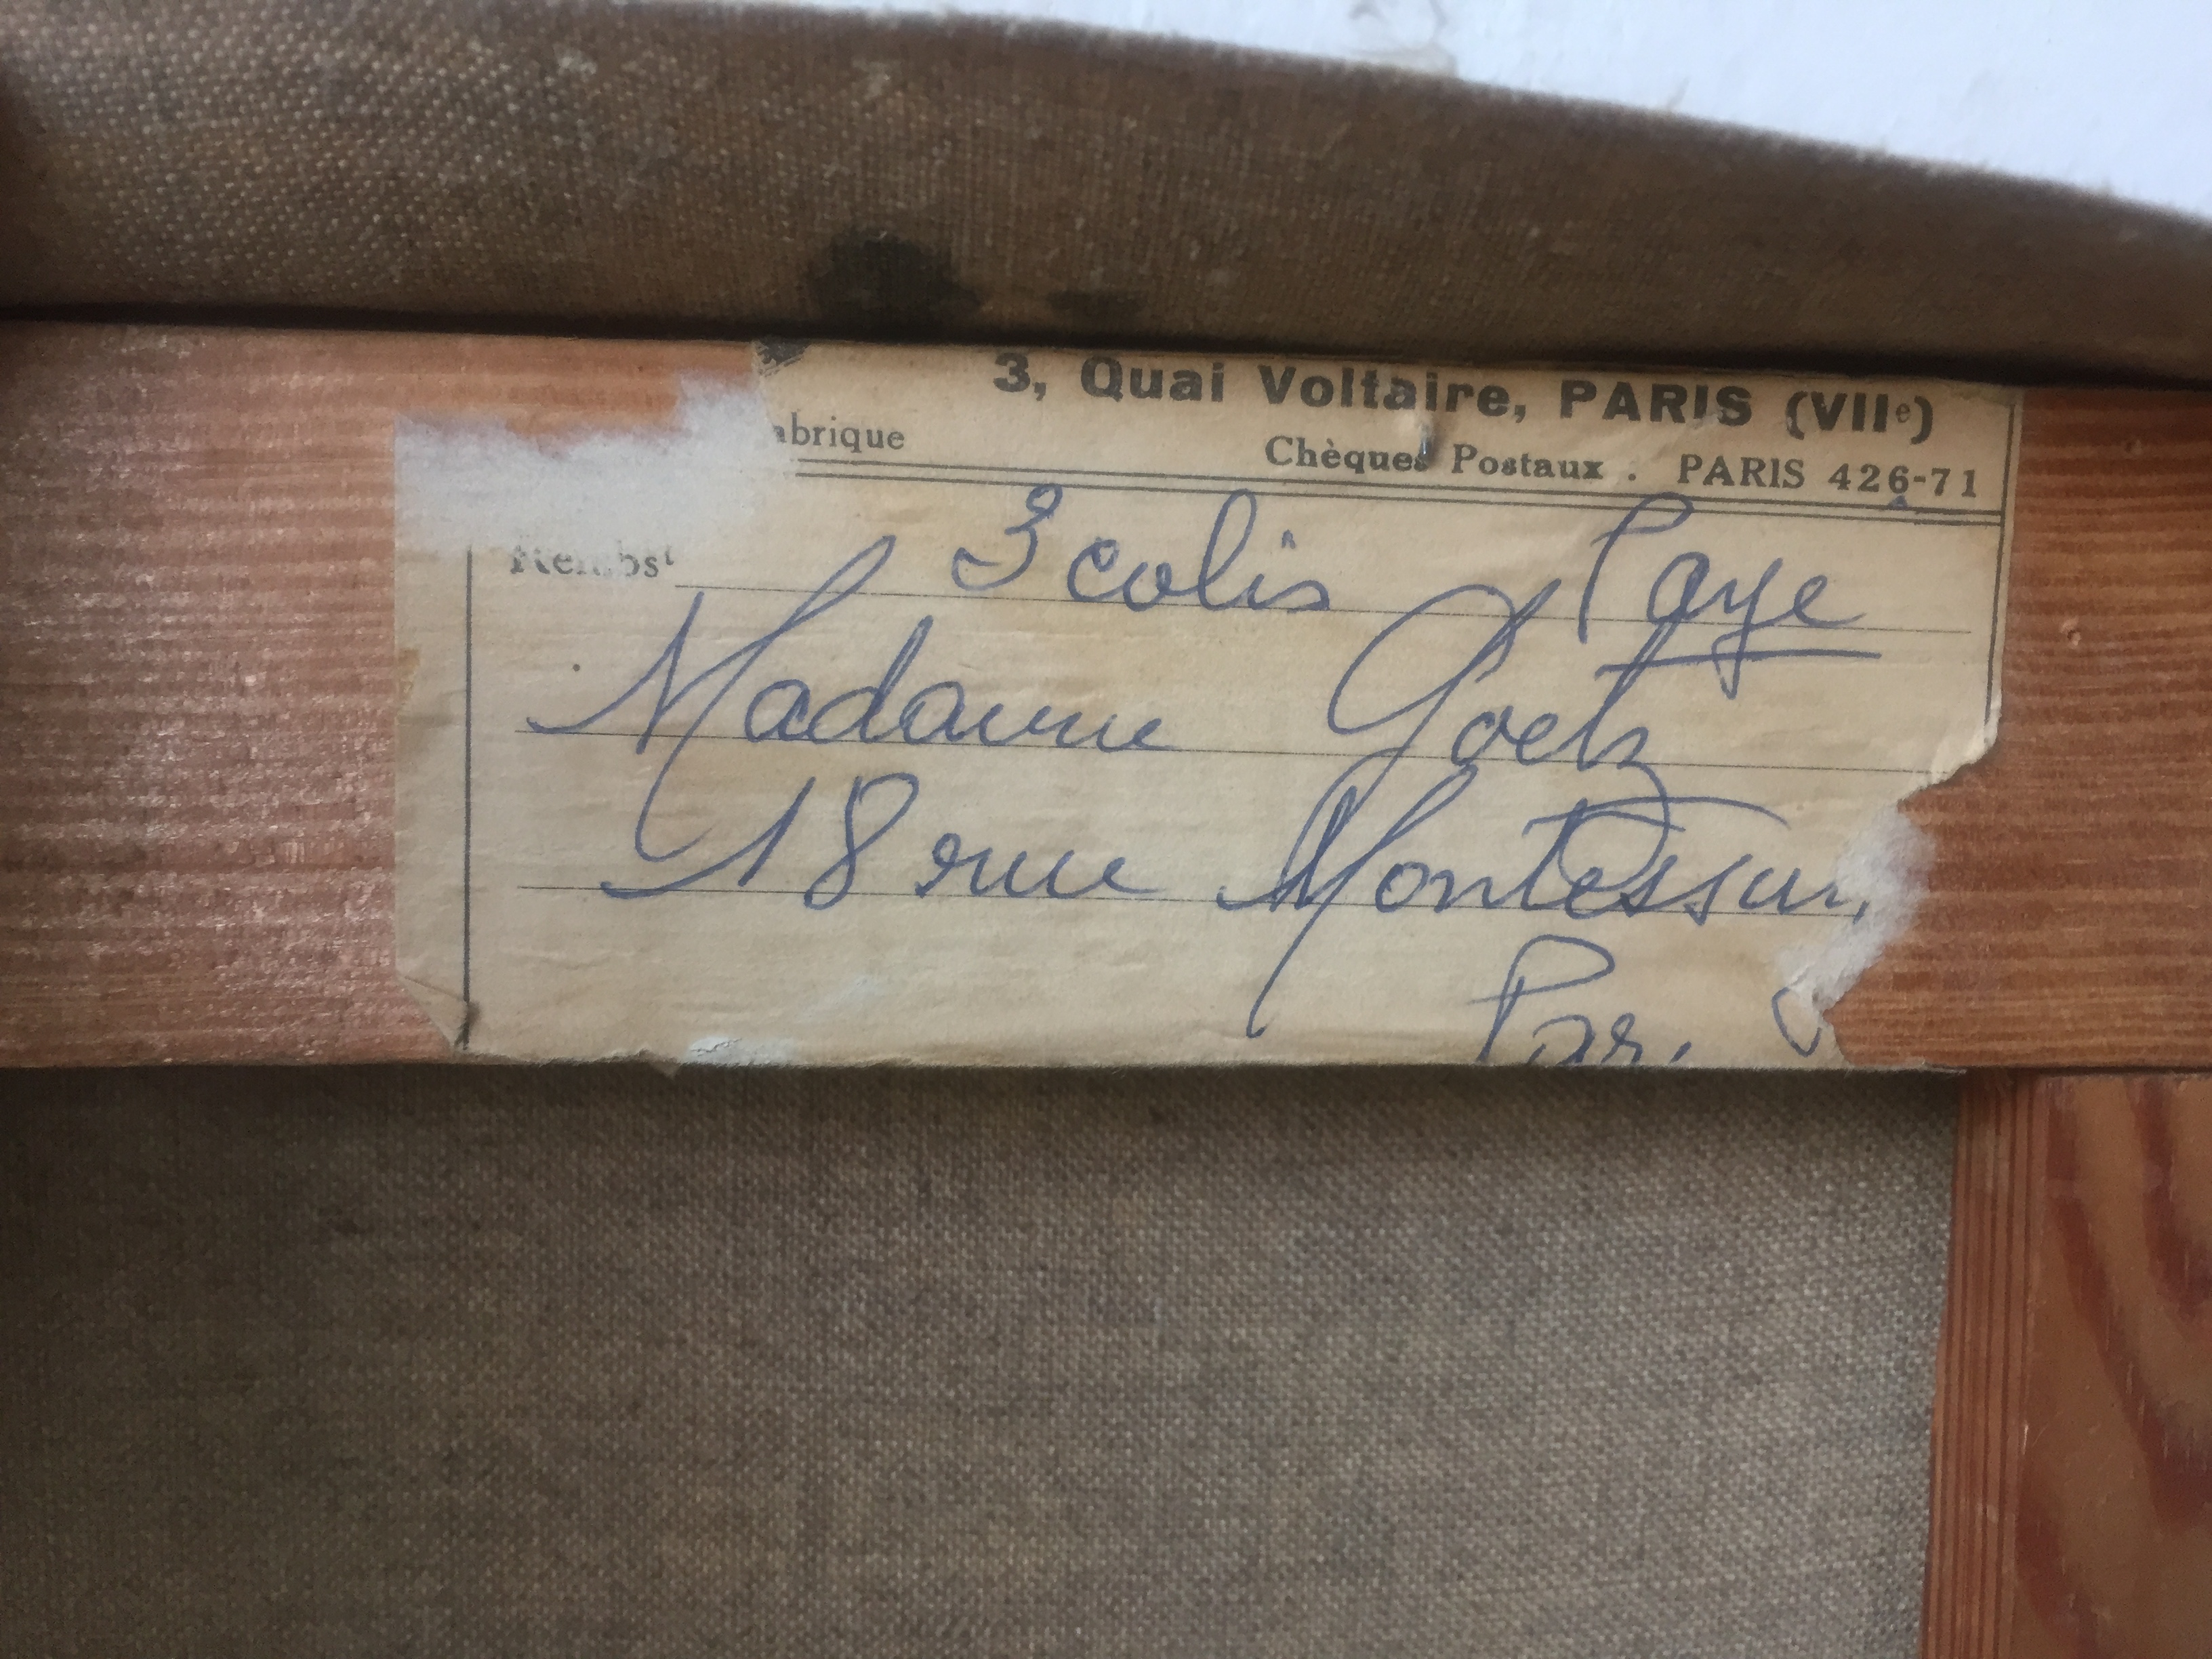 3, Quai Voltaire, PARIS (VIIe)
abrique Chèques Postaux . PARIS 426-71
Rembst 3 colis Paye
Madame Goetz
18 rue Montessuy
Paris